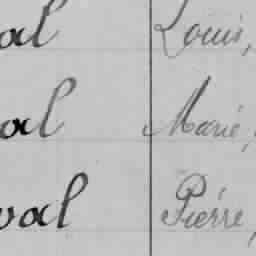 al Louis,
al Marie,
val Pierre,